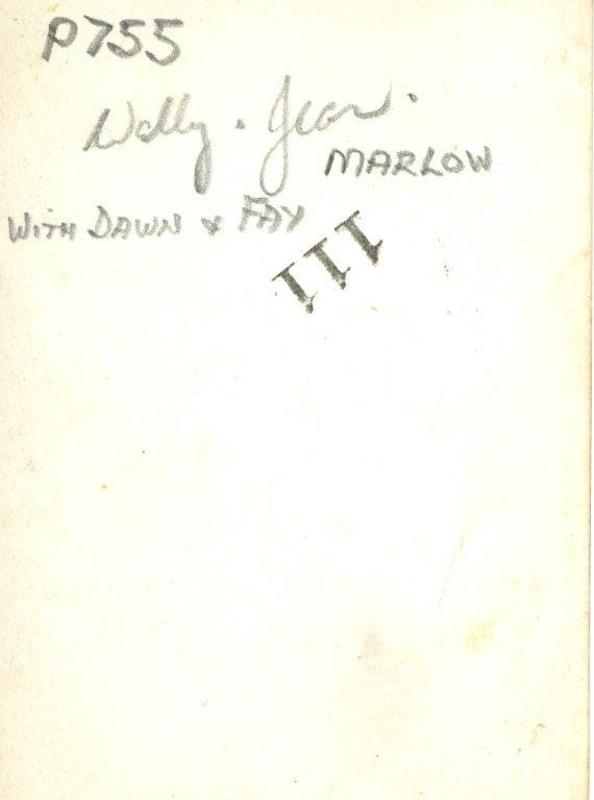 P755
Wally . Jean .
MARLOW
WITH DAWN & FAY
111